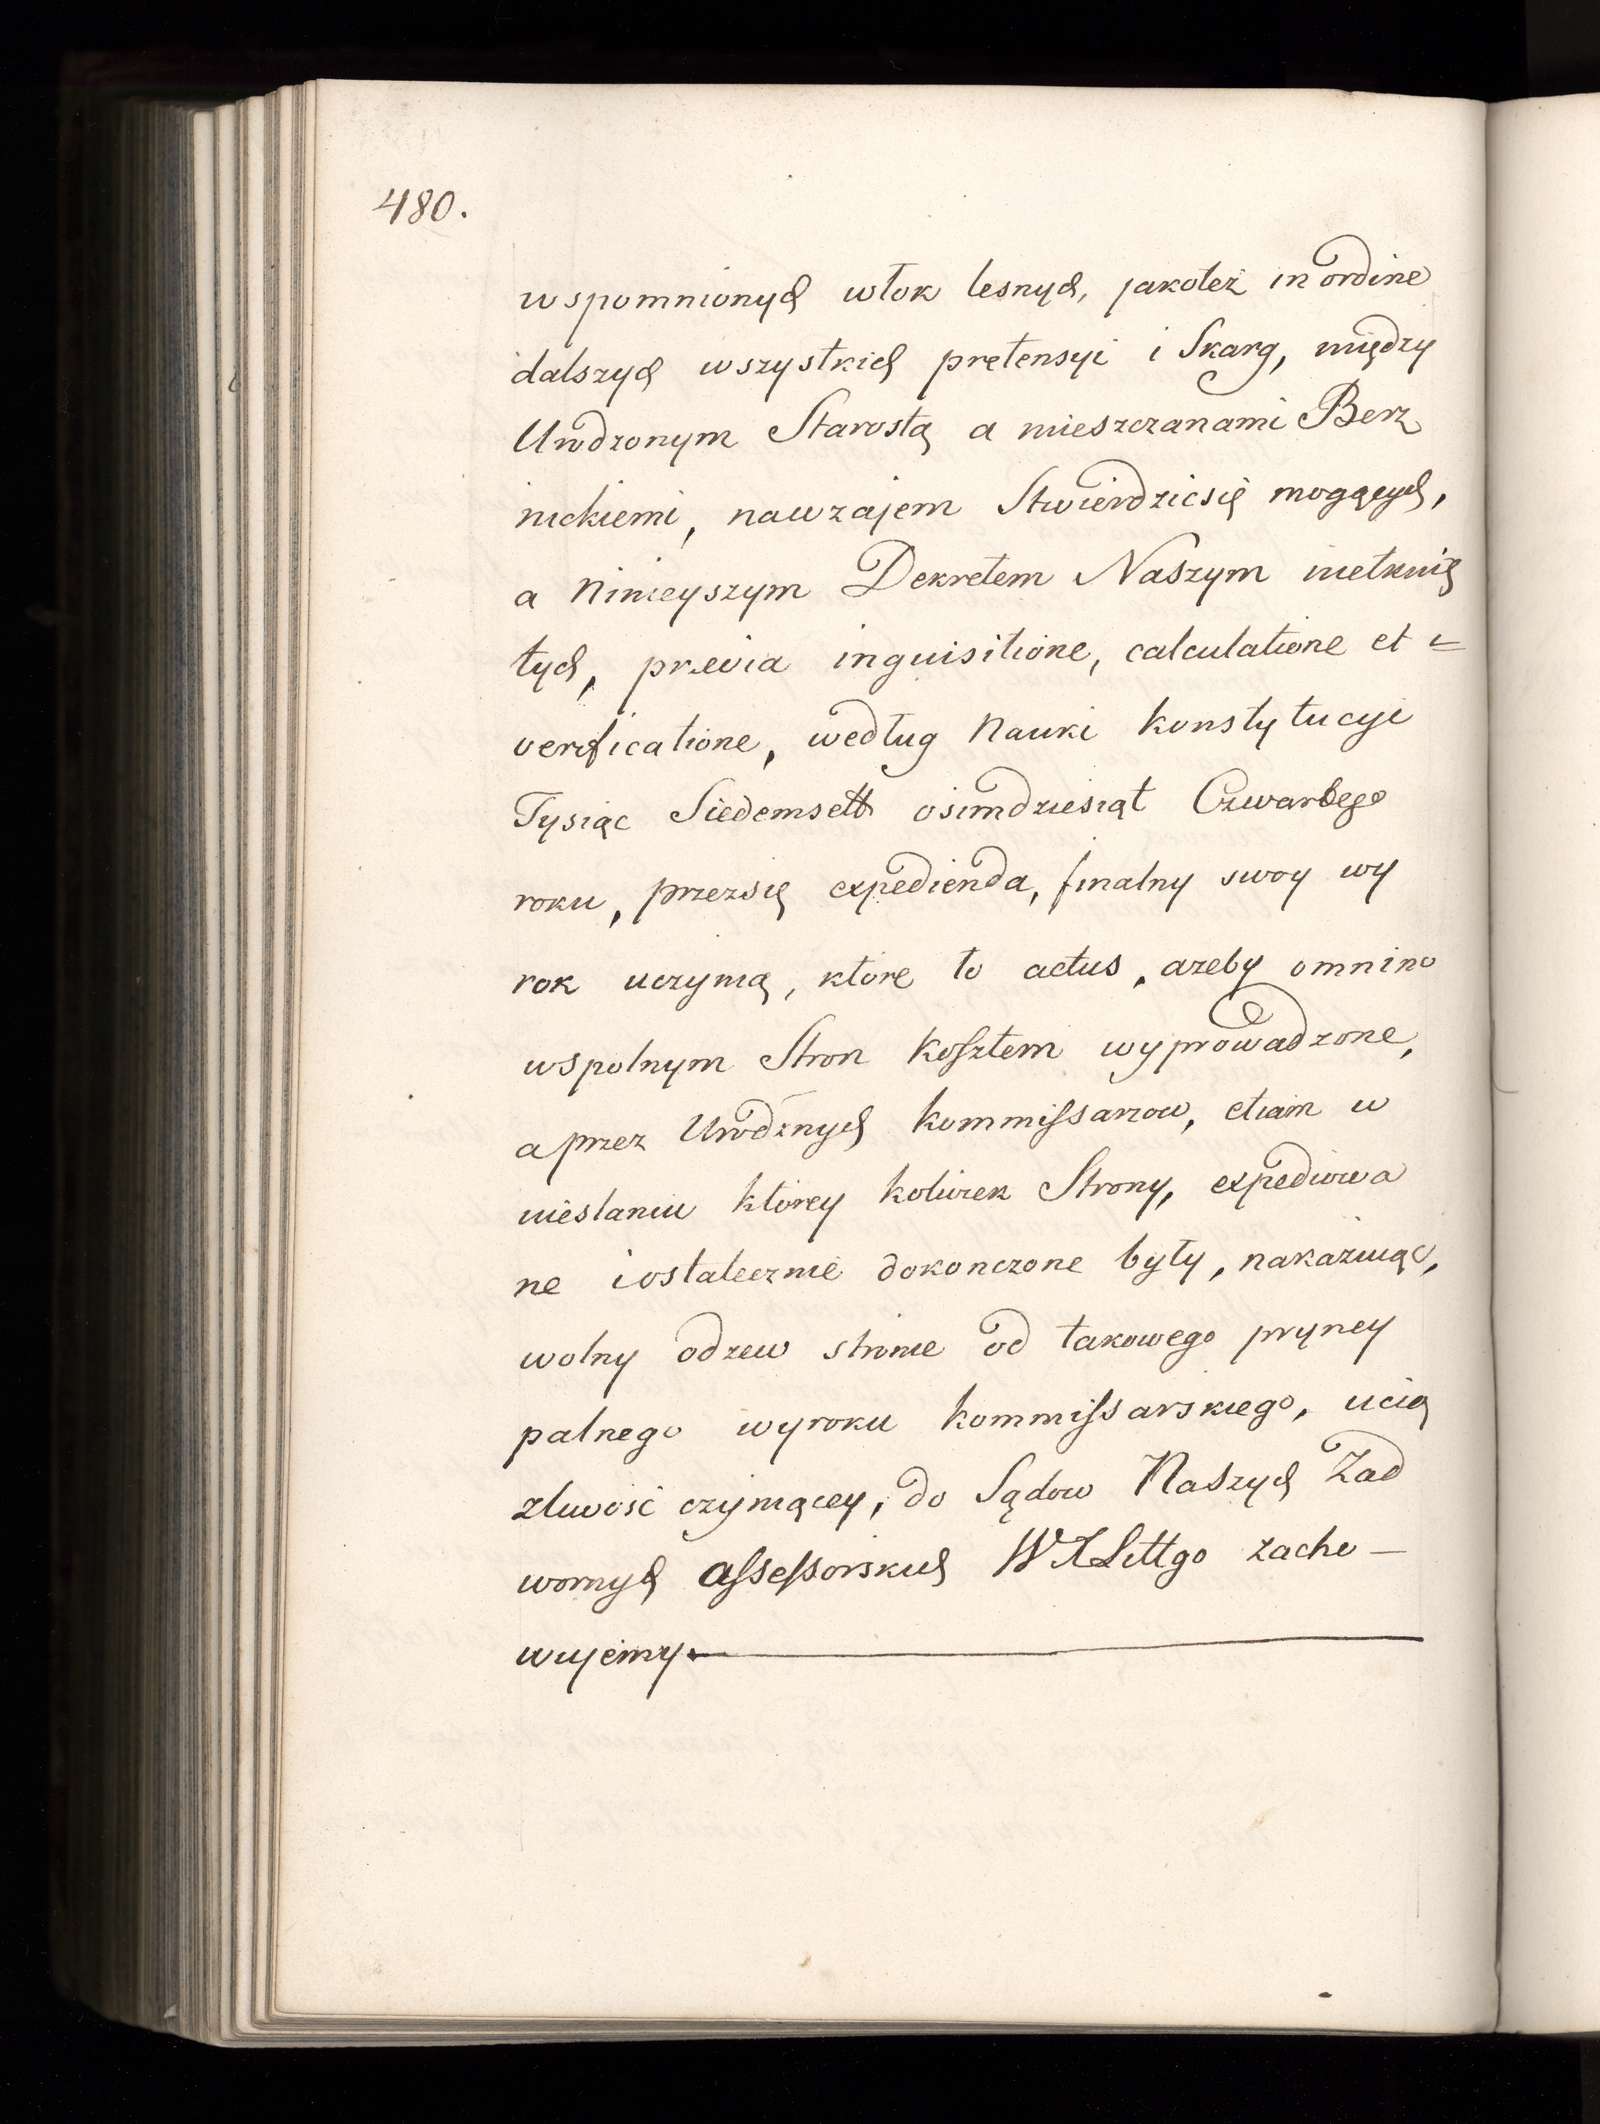 480.
wspomnionych włok lesnych, jakoteż in ordine
dalszych wszystkich pretensyi i Skarg, między
Urodzonym Starostą a mieszczanami Berz
nickiemi, nawzajem Stwierdzicsię mogących,
a Ninieyszym Dekretem Naszym nietknię
tych, previa inquisitione, calculatione et =
verificatione, według Nauki Konstytucyi
Tysiąc Siedemsett osimdziesiąt Czwartego
roku, przezsię expedienda, finalny swoy wy
rok uczynią, ktore to actus, azeby omnino
wspolnym Stron kosztem wyprowadzone,
a przez Urodznych kommissarzow, etiam w
niestaniu ktorey kolwiek Strony, expediowa
ne i ostatecznie dokonczone były, nakazuiąc,
wolny odzew stronie od takowego pryncy
palnego wyroku kommissarskiego, ucią
zluwość czyniącey, do Sądow Naszych Zad
wornych assessorskich WXLittgo zacho-
wujemy.